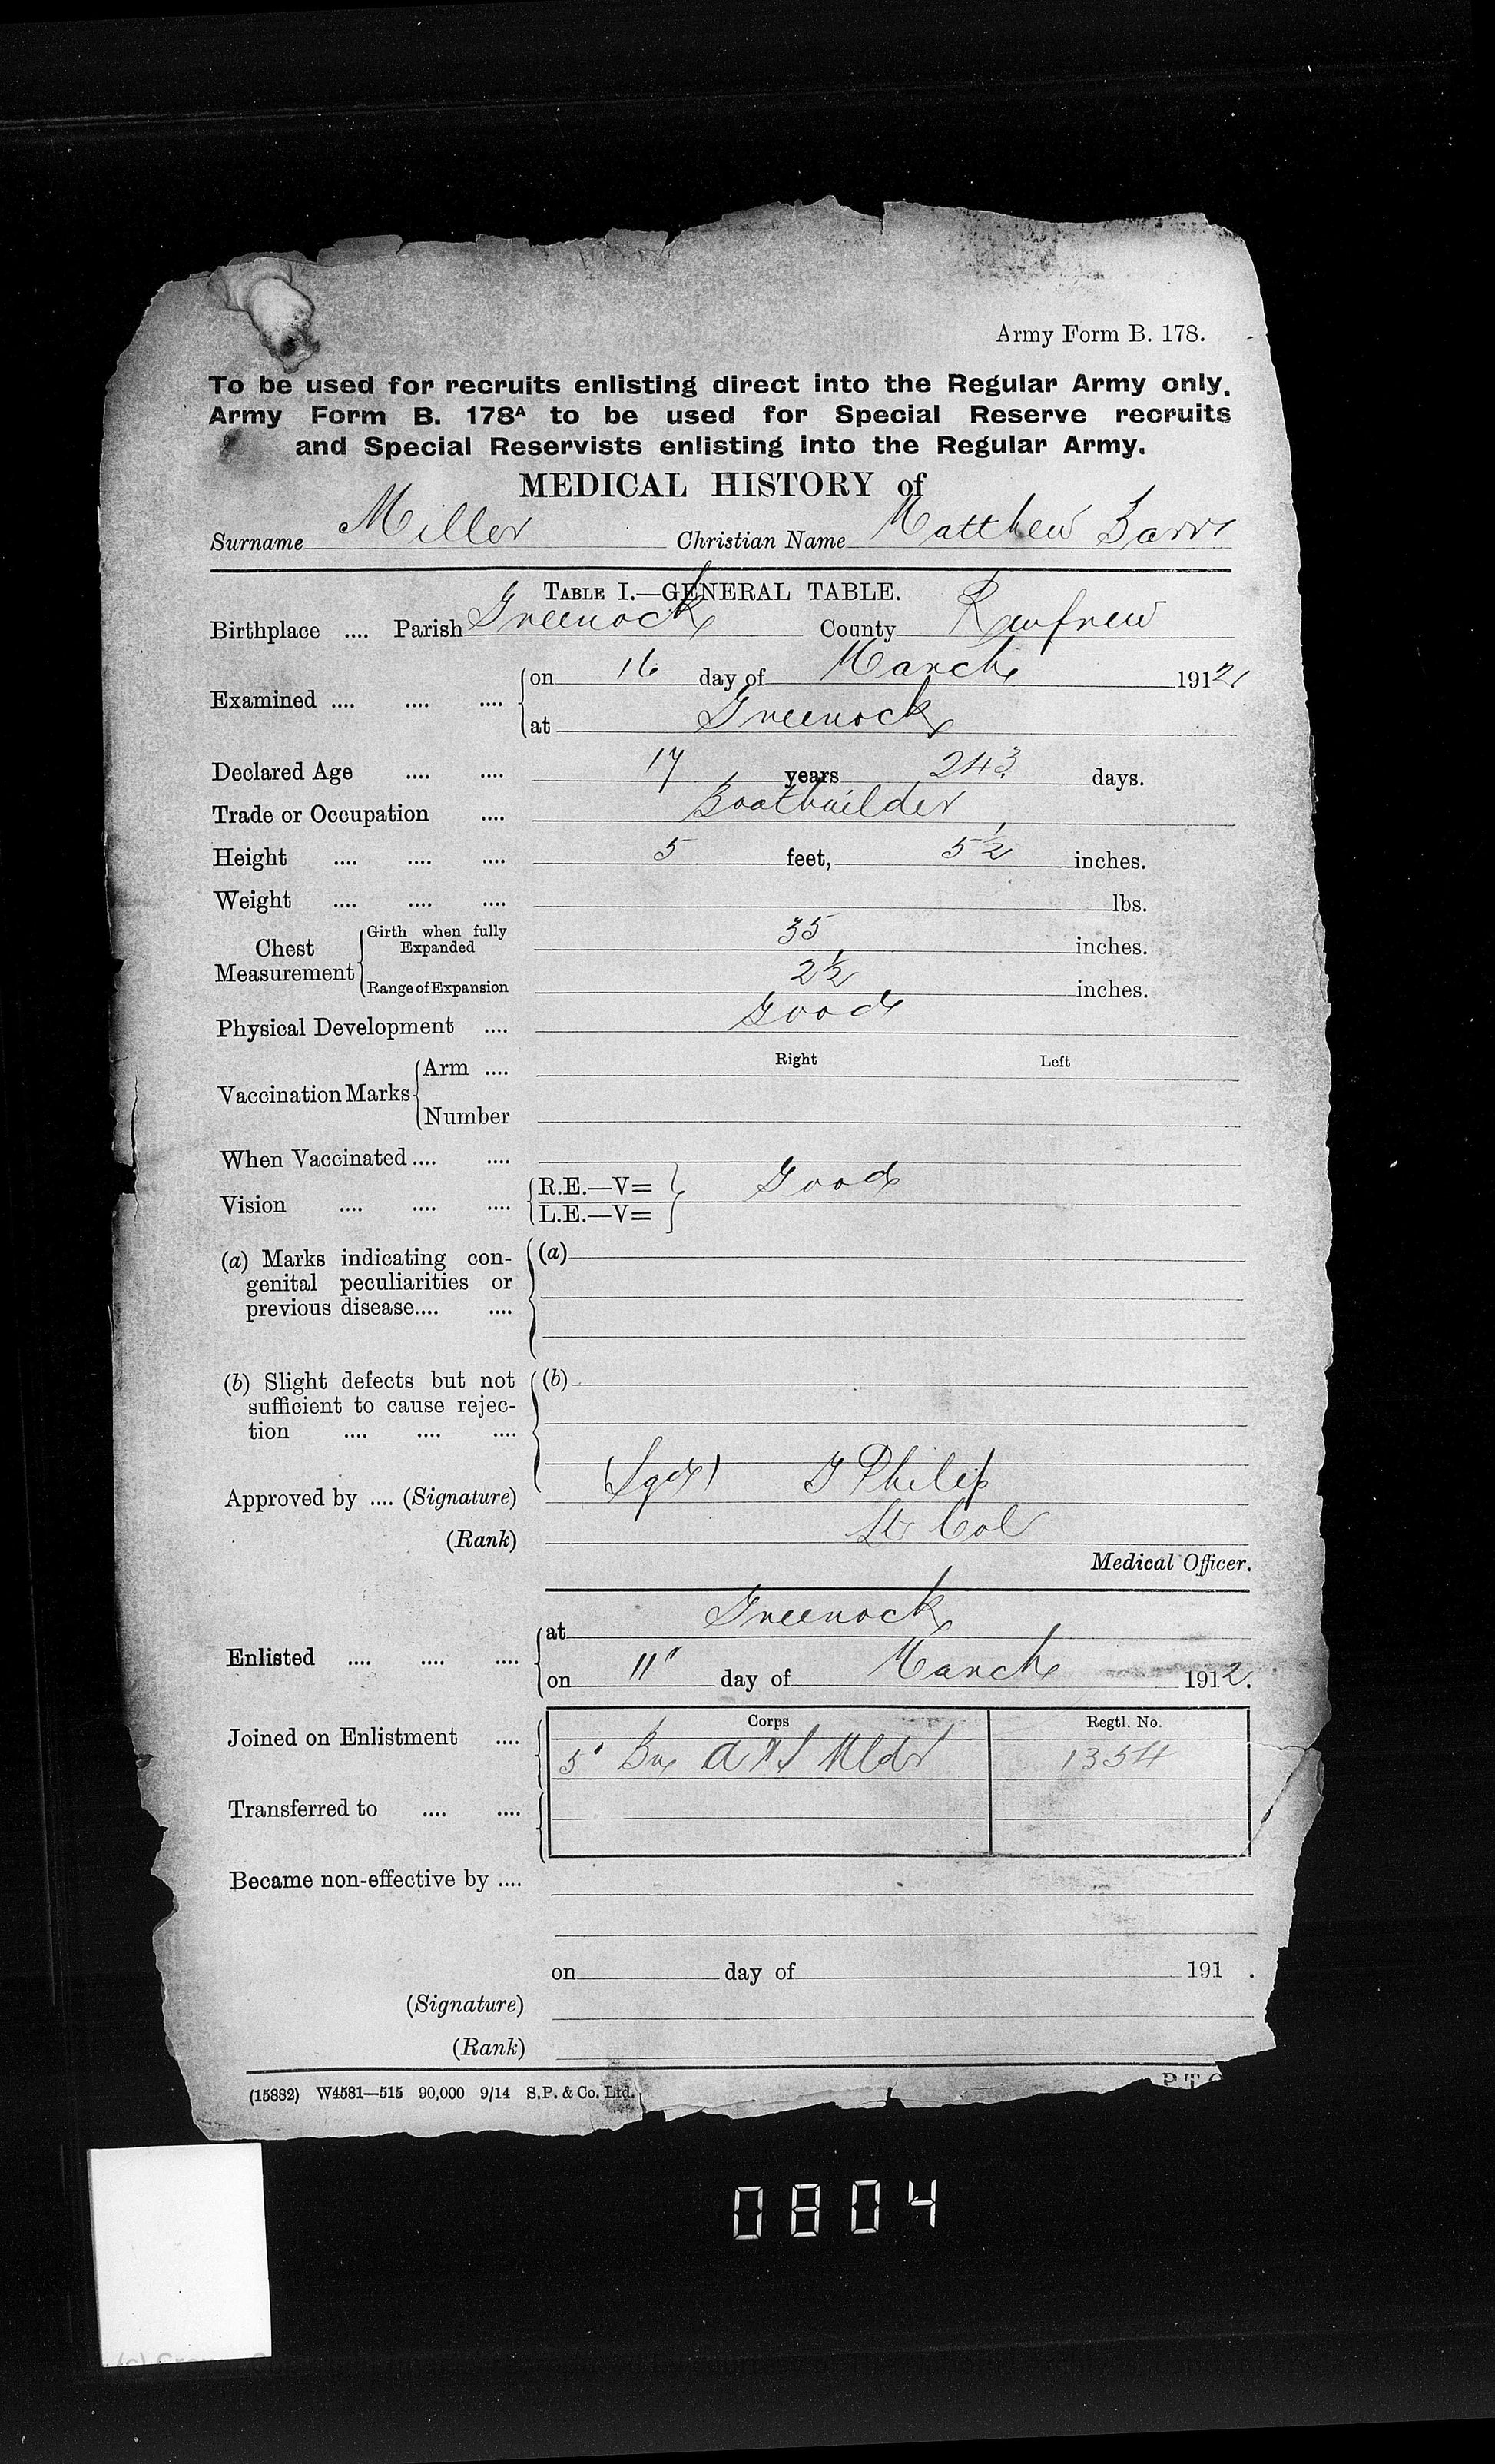 Army Form B. 178.
To be used for recruits enlisting direct into the Regular Army only.
Army Form B. 178A to be used for Special Reserve recruits
and Special Reservists enlisting into the Regular Army.
MEDICAL HISTORY of
Surname Miller Christian Name Matthew Barr
TABLE I.—GENERAL TABLE.
Birthplace .... Parish Greenock County Renfrew
Examined .... .... .... on 16 day of March 1912
at Greenock
Declared Age .... .... 17 years 243 days.
Trade or Occupation .... Boatbuilder
Height .... .... .... 5 feet, 5 1/2 inches.
Weight .... .... .... lbs.
Chest Measurement Girth when fully Expanded 35 inches.
Range of Expansion 2 1/2 inches.
Physical Development .... Good
Right Left
Vaccination Marks Arm ....
Number
When Vaccinated .... ....
Vision .... .... .... R.E.—V= Good
L.E.—V=
(a) Marks indicating con- (a)
genital peculiarities or
previous disease.... ....
(b) Slight defects but not (b)
sufficient to cause rejec-
tion .... .... ....
Approved by .... (Signature) (Sgd) G Philip
(Rank) Lt Col
Medical Officer.
Enlisted .... .... .... at Greenock
on 11" day of March 1912.
Corps Regtl. No.
Joined on Enlistment .... 5' Bn A & S Hldrs 1354
Transferred to .... ....
Became non-effective by ....
on day of 191 .
(Signature)
(Rank)
(15882) W4581—515 90,000 9/14 S.P. & Co. Ltd.
P.T.O
0804